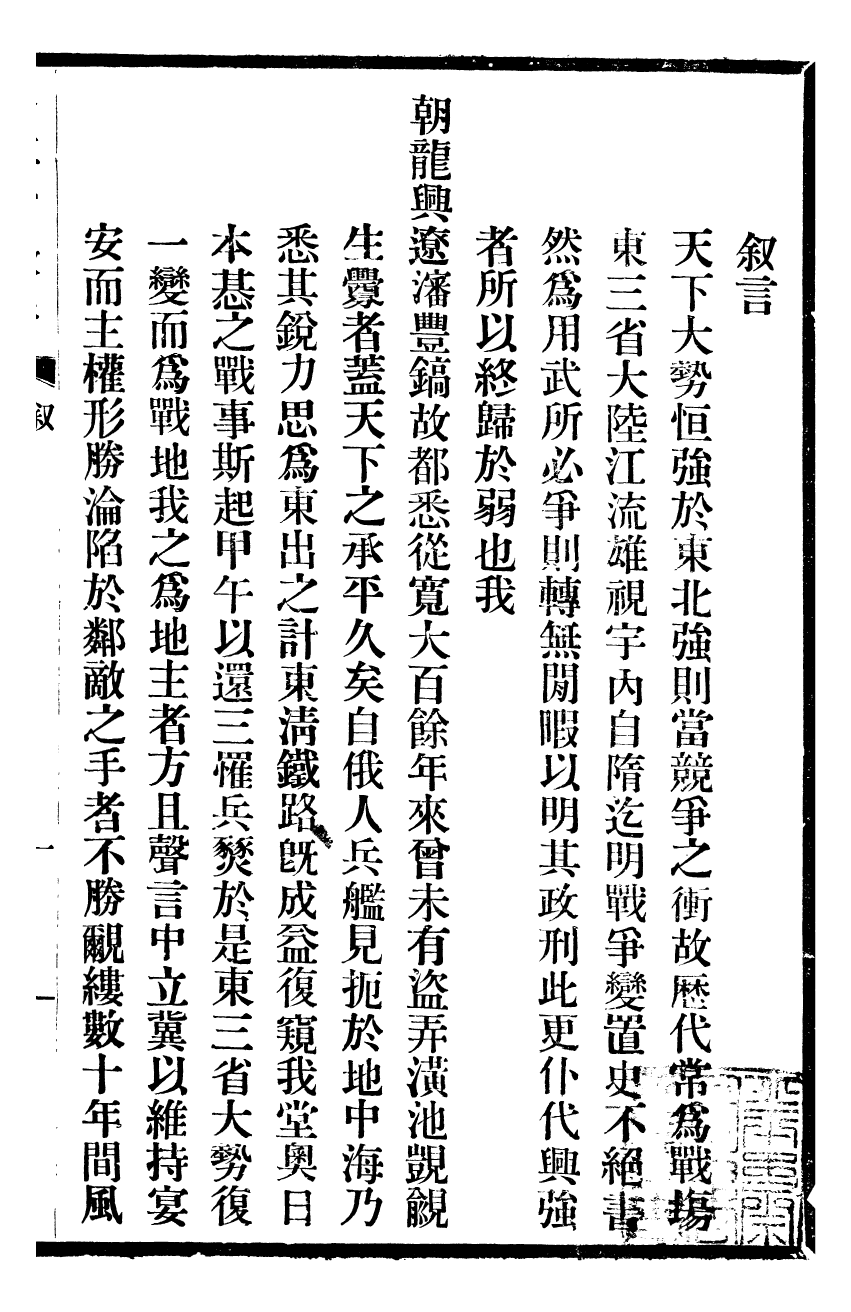 叙言
天下大勢恒強於東北強則當競爭之衝故歷代常為戰塲
東三省大陸江流雄視宇內自隋迄明戰爭變置史不絕書
然為用武所必爭則轉無閒暇以明其政刑此更仆代興強
者所以終歸於弱也我
朝龍興遼瀋豐鎬故都悉從寬大百餘年來曾未有盜弄潢池覬覦
生釁者蓋天下之承平久矣自俄人兵艦見扼於地中海乃
悉其銳力思為東出之計東淸鐵路旣成益復窺我堂奧日
本惎之戰事斯起甲午以還三罹兵燹於是東三省大勢復
一變而為戰地我之為地主者方且聲言中立冀以維持宴
安而主權形勝淪陷於鄰敵之手者不勝覼縷數十年間風
叙
一